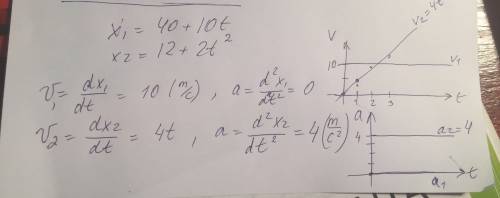 x₁ = 40 + 10t
x₂ = 12 + 2t²
V₁ = dx₁/dt = 10 (m/c), a = d²x₁/dt² = 0
V₂ = dx₂/dt = 4t, a = d²x₂/dt² = 4 (m/c²)
V
V₂ = 4t
10
V₁
1 2 3
t
a
4
a₂ = 4
a₁
t